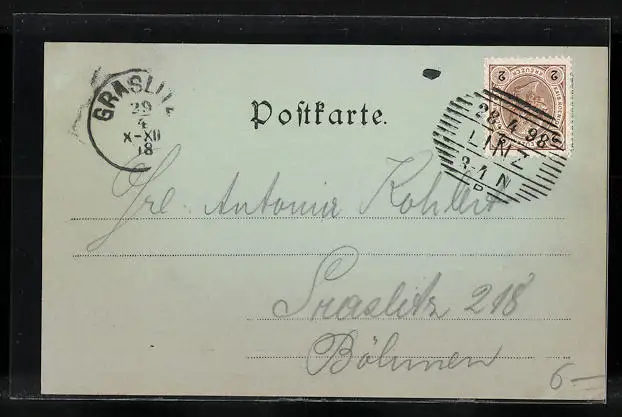 GRASLITZ
29
4
X-XII
18
Postkarte.
2 KREUZER 2
28.4.98
LINZ
3-4 N
Frl. Antonia Kohlert
Graslitz 218
Böhmen
6—